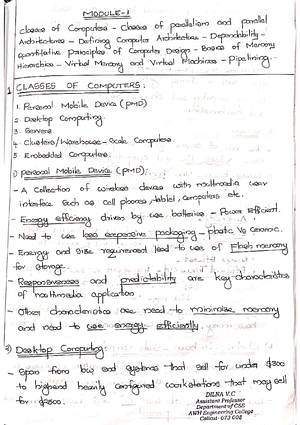 MODULE-1
Classes of Computers - Classes of parallelism and parallel
Architectures - Defining Computer Architecture - Dependability -
Quantitative Principles of Computer Design - Basics of Memory
Hierarchies - Virtual Memory and Virtual Machines - Pipelining.
1 CLASSES OF COMPUTERS:
1. Personal Mobile Device (PMD)
2. Desktop Computing.
3. Servers
4. Clusters/Warehouse-Scale Computers.
5. Embedded Computers.
1) Personal Mobile Device (PMD):
- A Collection of wireless devices with multimedia user
interface such as cell phones, tablet, computers etc.
- Energy efficiency driven by use batteries - Power Efficient.
- Need to use less expensive packaging - plastic Vs Ceramic.
- Energy and Size requirement lead to use of Flash memory
for storage.
- Responsiveness and predictability are key characteristics
of multimedia application.
- Other characteristics are need to minimize memory
and need to use energy efficiently.
2) Desktop Computing:
- Span from low end systems that sell for under $300
to highend heavily configured workstations that may sell
for $2500.
DILNA V.C
Assistant Professor
Department of CSE
AWH Engineering College
Calicut - 673 008